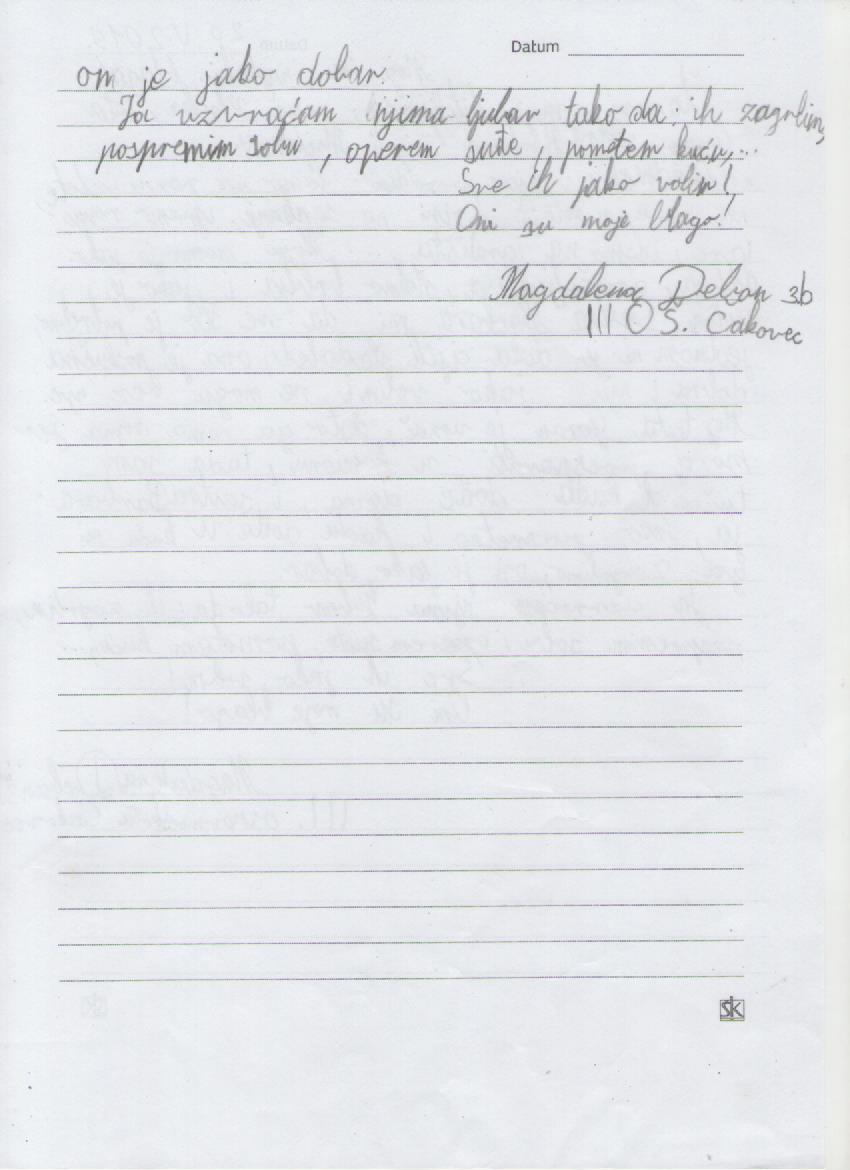 Datum
on je jako dobar
Ja uzvraćam njima ljubav tako da: ih zagrlim,
pospremim sobu, operem suđe, pometem kuću,...
Sve ih jako volim!
Oni su moje blago!
Magdalena Deban 3b
III OŠ. Čakovec
SK